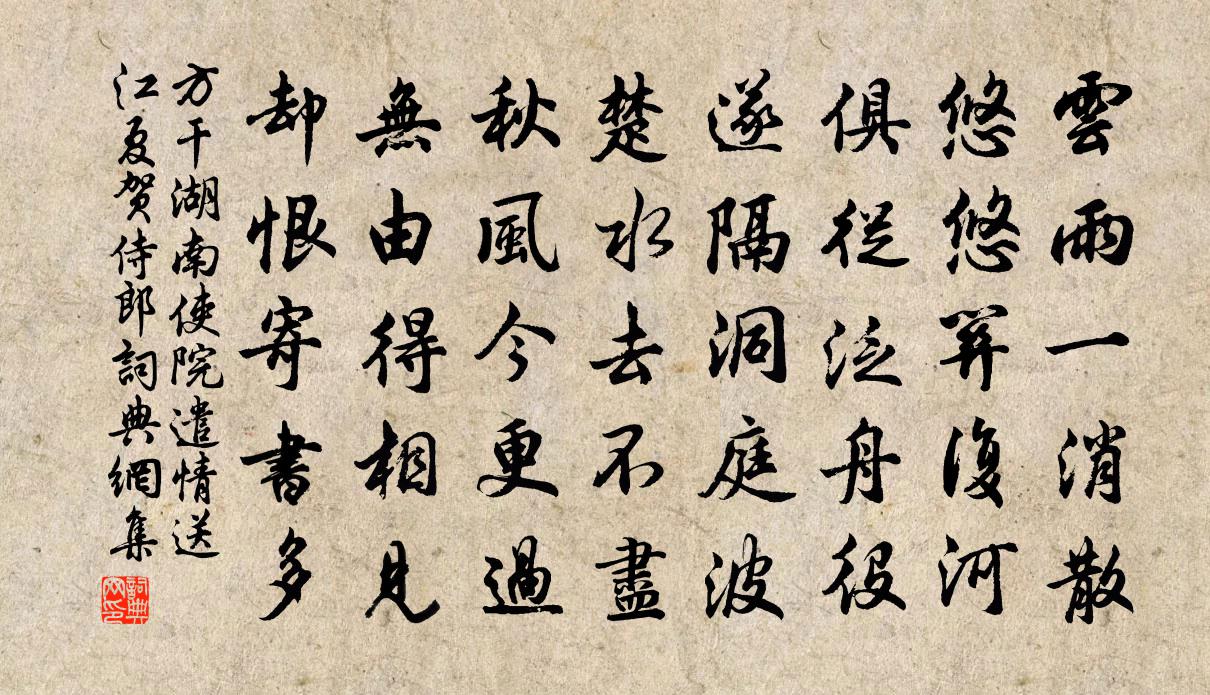 雲雨一消散
悠悠關復河
俱從泛舟役
遂隔洞庭波
楚水去不盡
秋風今更過
無由得相見
却恨寄書多
方干湖南使院遣情送
江夏贺侍郎詞典網集
詞典
网印